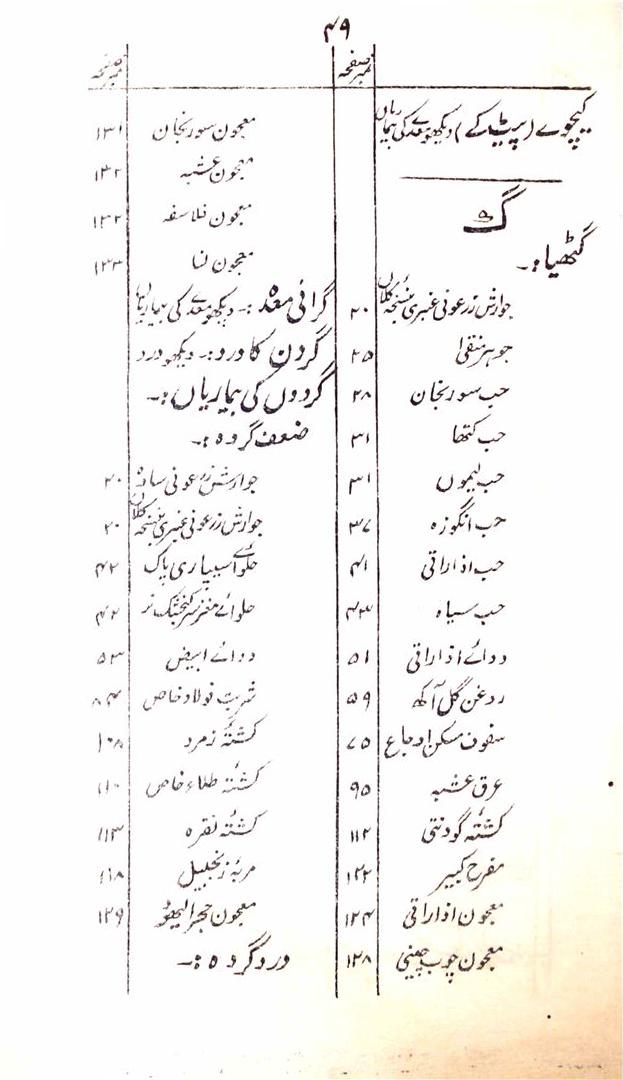 ۴۹
صفحہ نمبر
کیچوے (پیٹ کے) دیکھو معدے کی بیماریاں
گ
گٹھیا:-
جوارش زرعونی عنبری بنسخہ کلاں ۲۰
جوہر منقیٰ ۲۵
حب سورنجان ۲۸
حب کتھا ۳۱
حب لیموں ۳۱
حب انگوزہ ۳۷
حب اذاراقی ۴۱
حب سیاہ ۴۳
دوائے اذاراقی ۵۱
روغن گل آکھ ۵۹
سفوف مسکن اوجاع ۷۵
عرق عشبہ ۹۵
کشتۂ گودنتی ۱۱۲
مفرح کبیر ۱۲۲
معجون اذاراقی ۱۲۴
معجون چوب چینی ۱۲۸
صفحہ نمبر
معجون سورنجان ۱۳۱
معجون عشبہ ۱۳۲
معجون فلاسفہ ۱۳۲
معجون لنا ۱۳۳
گرانی معدہ:- دیکھو معدے کی بیماریاں
گردن کا درد:- دیکھو درد
گردوں کی بیماریاں:-
ضعف گردہ:-
جوارش زرعونی سادہ ۲۰
جوارش زرعونی عنبری بنسخہ کلاں ۲۰
حلوائے سپیاری پاک ۴۲
حلوائے مغز سر کنجشک نر ۴۲
دوائے ابیض ۵۳
شربت فولاد خاص ۸۴
کشتۂ زمرد ۱۰۸
کشتۂ طلاء خاص ۱۱۰
کشتۂ نقرہ ۱۱۳
مربہ زنجبیل ۱۱۸
معجون حجر الیہود ۱۲۹
درد گردہ:-